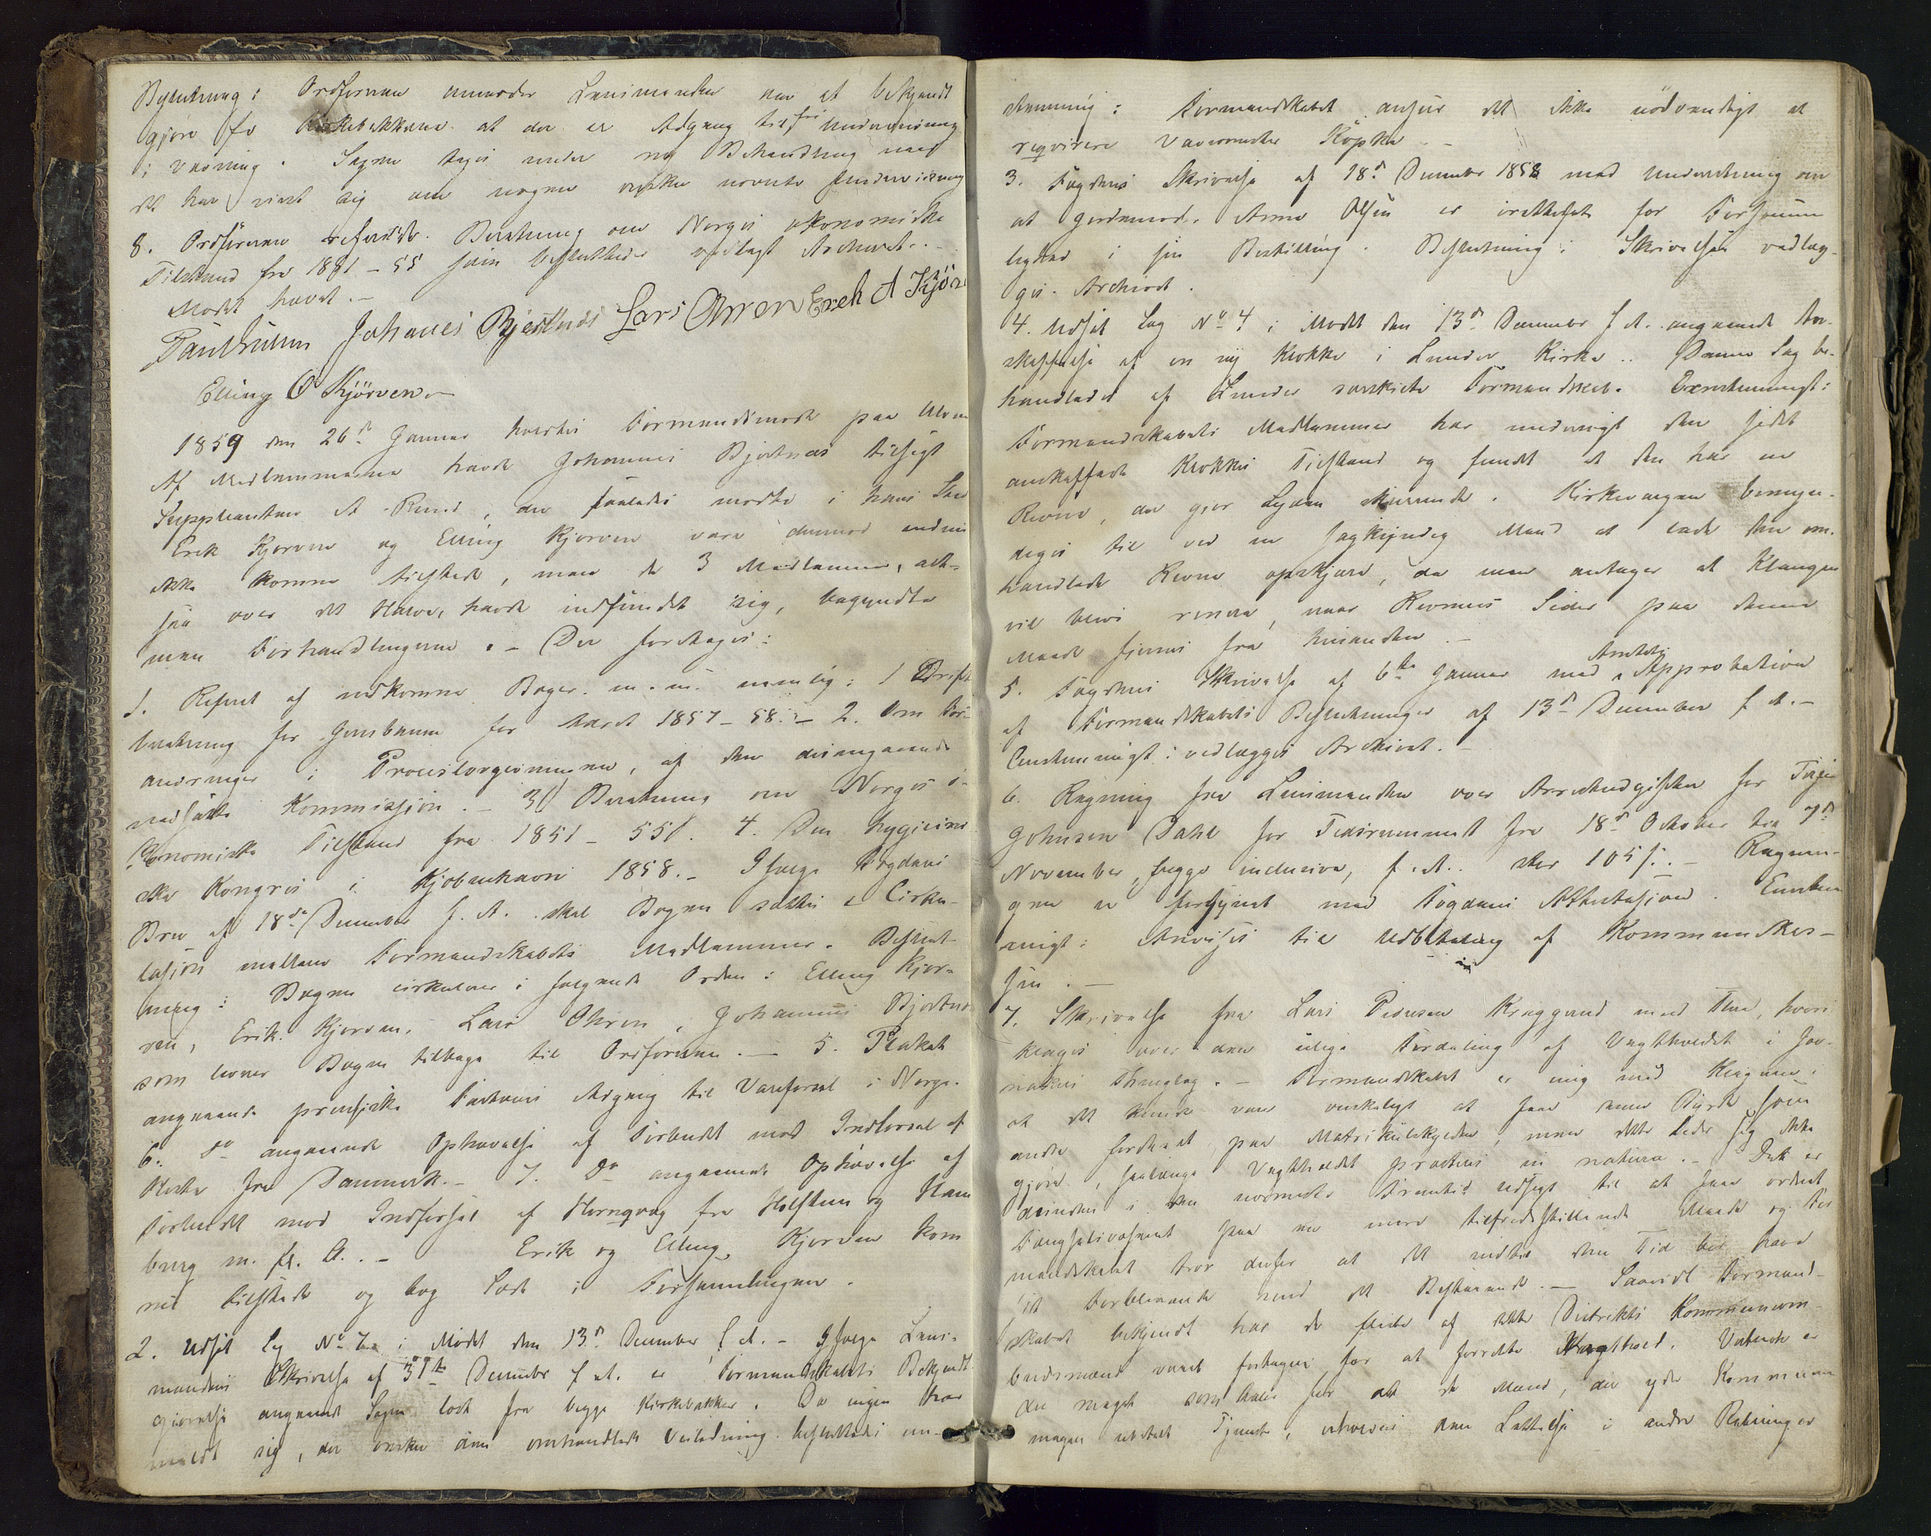 Beslutning: Ordføreren anmoder Lensmanden om at bekjendt
gjøre fra Kirkebakkerne at der er Adgang til fri Underviisning
i Vævning. Sagen tages under ny Behandling naar
det har viist sig om nogen ønsker nævnte Underviisning
8. Ordføreren refererede Beretning om Norges økonomiske
Tilstand fra 1851–55 som besluttedes vedlagt Archivet. –
Mødet hævet. –
Johanes Bjertnæs Lars Ohren Erek A Kjör
Elling O Kjörven
1859 den 26de Januar holdtes Formandsmøde paa
Af Medlemmerne havde Johannes Bjertnæs tilsagt
Suppleanten A. , der saaledes mødte i hans Sted
Erik Kjørven og Elling Kjørven vare derimod endnu
ikke komne tilstede, men da 3 Medlemmer, alt-
saa over det Halve, havde indfundet sig, begyndte
man Forhandlingerne. – Der foretoges:
1. Referat af indkomne Bøger m. m. nemlig: 1 Drifts
beretning for Jernbanen for Aaret 1857–58. – 2. Om For-
andringer i Proceslovgivningen, af den desangaaende
nedsatte Kommission. – 3) Beretning om Norges ø-
konomiske Tilstand fra 1851–55. 4. Den hygieini-
ske Kongres i Kjøbenhavn 1858. – Ifølge Fogdens
Brev af 18de December f. A. skal Bogen sættes i Cirku-
lasjon mellem Formandskabets Medlemmer. Beslut-
ning: Bogen cirkulerer i følgende Orden: Elling Kjør-
ven, Erik Kjørven, Lars Ohren, Johannes Bjertnæs
som leverer Bogen tilbage til Ordføreren. – 5. Plakat
angaaende prøusiske Fartøiers Adgang til Vareførsel i Norge.
6. Do angaaende Ophævelse af Forbudet mod Indførsel af
Heste fra Danmark. – 7. Do angaaende Ophævelse af
Forbudet mod Indførsel af Hornqvæg fra Holsten og Ham
burg m. fl. A. – Erik og Elling Kjørven kom
nu tilstede og tog Sæde i Forsamlingen.
2. Udsat Sag No 7 i Mødet den 13de December f. A. – Ifølge Lens-
mandens Skrivelse af 31te December f. A. er Formandskabets Bekjendt
gjørelse angaaende Sagen læst fra begge Kirkebakker. Da ingen har
meldt sig, der ønsker den omhandlede Veiledning besluttedes een-
stemmig: Formandskabet anseer det ikke nødvendigt at
reqvirere Vævemester Köpke –
3. Fogdens Skrivelse af 18de December 1858 med Underretning om
at Gjordemod. Anne Olsen er irettesat for Forsømme
lighed i sin Bestilling. Beslutning: Skrivelsen vedlæg-
ges Archivet.
4. Udsat Sag No 4 i Mødet den 13de December f. A. angaaende An-
skaffelse af en ny Klokke i Lunder Kirke. Denne Sag be-
handledes af Lunder særskilte Formandskab. Eenstemmigt:
Formandskabets Medlemmer har undersøgt den sidst
anskaffede Klokkes Tilstand og fundet at den har en
Revne, der gjør Lyden skurrende. Kirkeværgen bemyn-
diges til ved en sagkyndig Mand at lade den om-
handlede Revne opskjære, da man antager at Klangen
vil blive renere, naar Revnens Sider paa denne
Maade fjernes fra hinanden. –
5. Fogdens Skrivelse af 6te Januar med Amtets Approbation
af Formandskabets Beslutninger af 13de December f. A. –
Eenstemmigt: vedlægges Archivet. –
6. Regning fra Lensmanden over Arrestudgifter for
Johnsen Dahl for Tidsrummet fra 18de October til 7de
November, begge inclusive, f. A. stor 105 ß. – Regnin-
gen er forsynet med Fogdens Attestasjon. Eenstem
migt: Anvises til Udbetaling af Kommunekas-
sen. –
7. Skrivelse fra Lars Pedersen Kraggerud med Flere, hvori
klages over den ulige Fordeling af Vagtholdet i
nakers Thinglag. – Formandskabet er enig med Klagerne i
at det kunde være ønskeligt at faae denne Byrde som
andre fordeelt paa Matrikulskylden, men dette lader sig ikke
gjøre, saalænge Vagtholdet præsteres in natura. – Det er
desuden i den nærmeste Fremtid Udsigt til at faae ordnet
Fangselsvæsenet paa en mere tilfredsstillende Maade og For
mandskabet tror derfor at det indtil den Tid bør have
sit Forblivende med det Bestaaende. – Saavidt Formand-
skabet bekjendt har de fleste af dette Distrikts Kommuneom-
budsmænd været fritagne for at forrette Vagthold. Vistnok er
der meget som taler for at de Mænd, der yde Kommunen
megen ubetalt Tjeneste, erholdes den Lettelse i andre Retninger